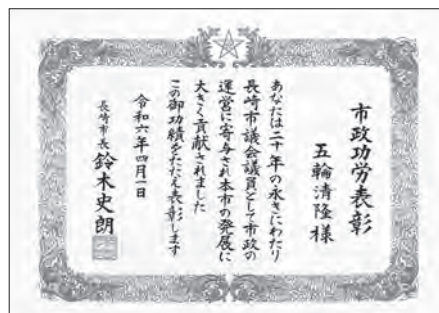 市政功労表彰
五輪清隆様
あなたは二十年の永きにわたり
長崎市議会議員として市政の
運営に寄与され本市の発展に
大きく貢献されました
この御功績をたたえ表彰します
令和六年四月一日
長崎市長 鈴木史朗